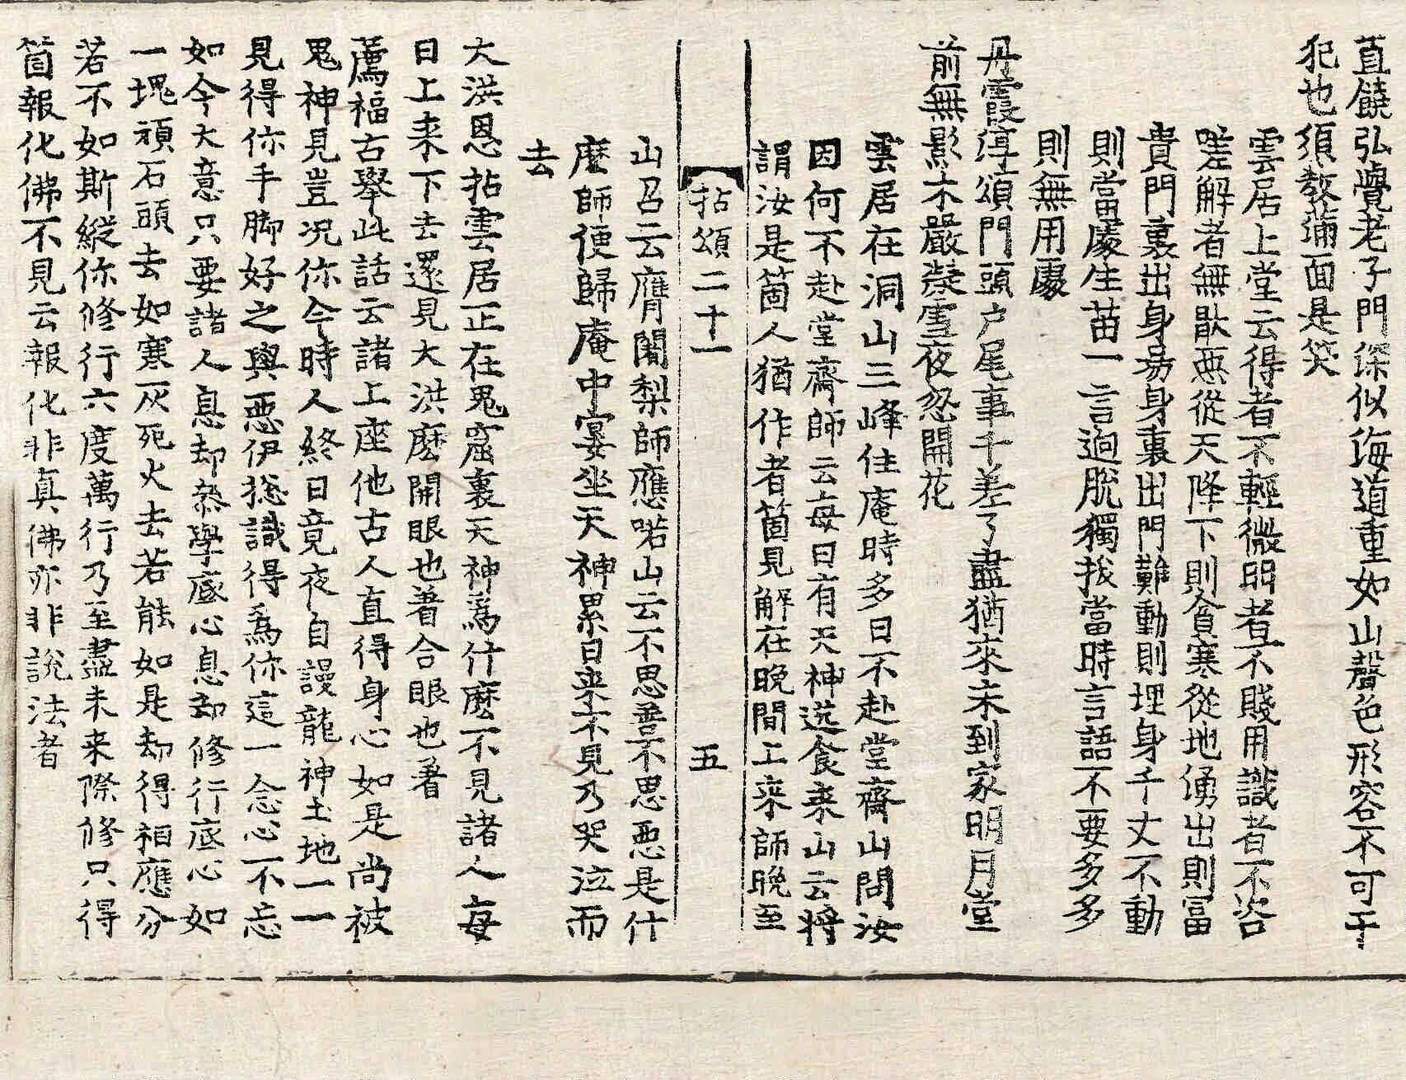 直饒弘覺老子門深似海道重如山聲色形容不可干
犯也須敎滿面是笑
雲居上堂云得者不輕微明者不賤用識者不咨
嗟解者無猒惡從天降下則貧寒從地湧出則冨
貴門裏出身易身裏出門難動則埋身千丈不動
則當處生苗一言逈脫獨拔當時言語不要多多
則無用處
丹霞淳頌門頭户尾事千差了盡猶來未到家明月堂
前無影木嚴凝雪夜忽開花
雲居在洞山三峰住庵時多日不赴堂齋山問汝
因何不赴堂齋師云每日有天神送食来山云將
謂汝是箇人猶作者箇見解在晚間上來師晚至
拈頌二十一 五
山召云膺闍梨師應喏山云不思善不思惡是什
麽師便歸庵中宴坐天神累日来不見乃哭泣而
去
大洪恩拈雲居正在鬼窟裏天神爲什麽不見諸人每
日上来下去還見大洪麽開眼也著合眼也著
薦福古擧此話云諸上座他古人直得身心如是尚被
鬼神見豈況你今時人終日竟夜自謾龍神土地一一
見得你手脚好之與惡伊揔識得爲你這一念心不忘
如今大意只要諸人息却叅學底心息却修行底心如
一塊頑石頭去如寒灰死火去若能如是却得相應分
若不如斯縱你修行六度萬行乃至盡未来際修只得
箇報化佛不見云報化非真佛亦非說法者